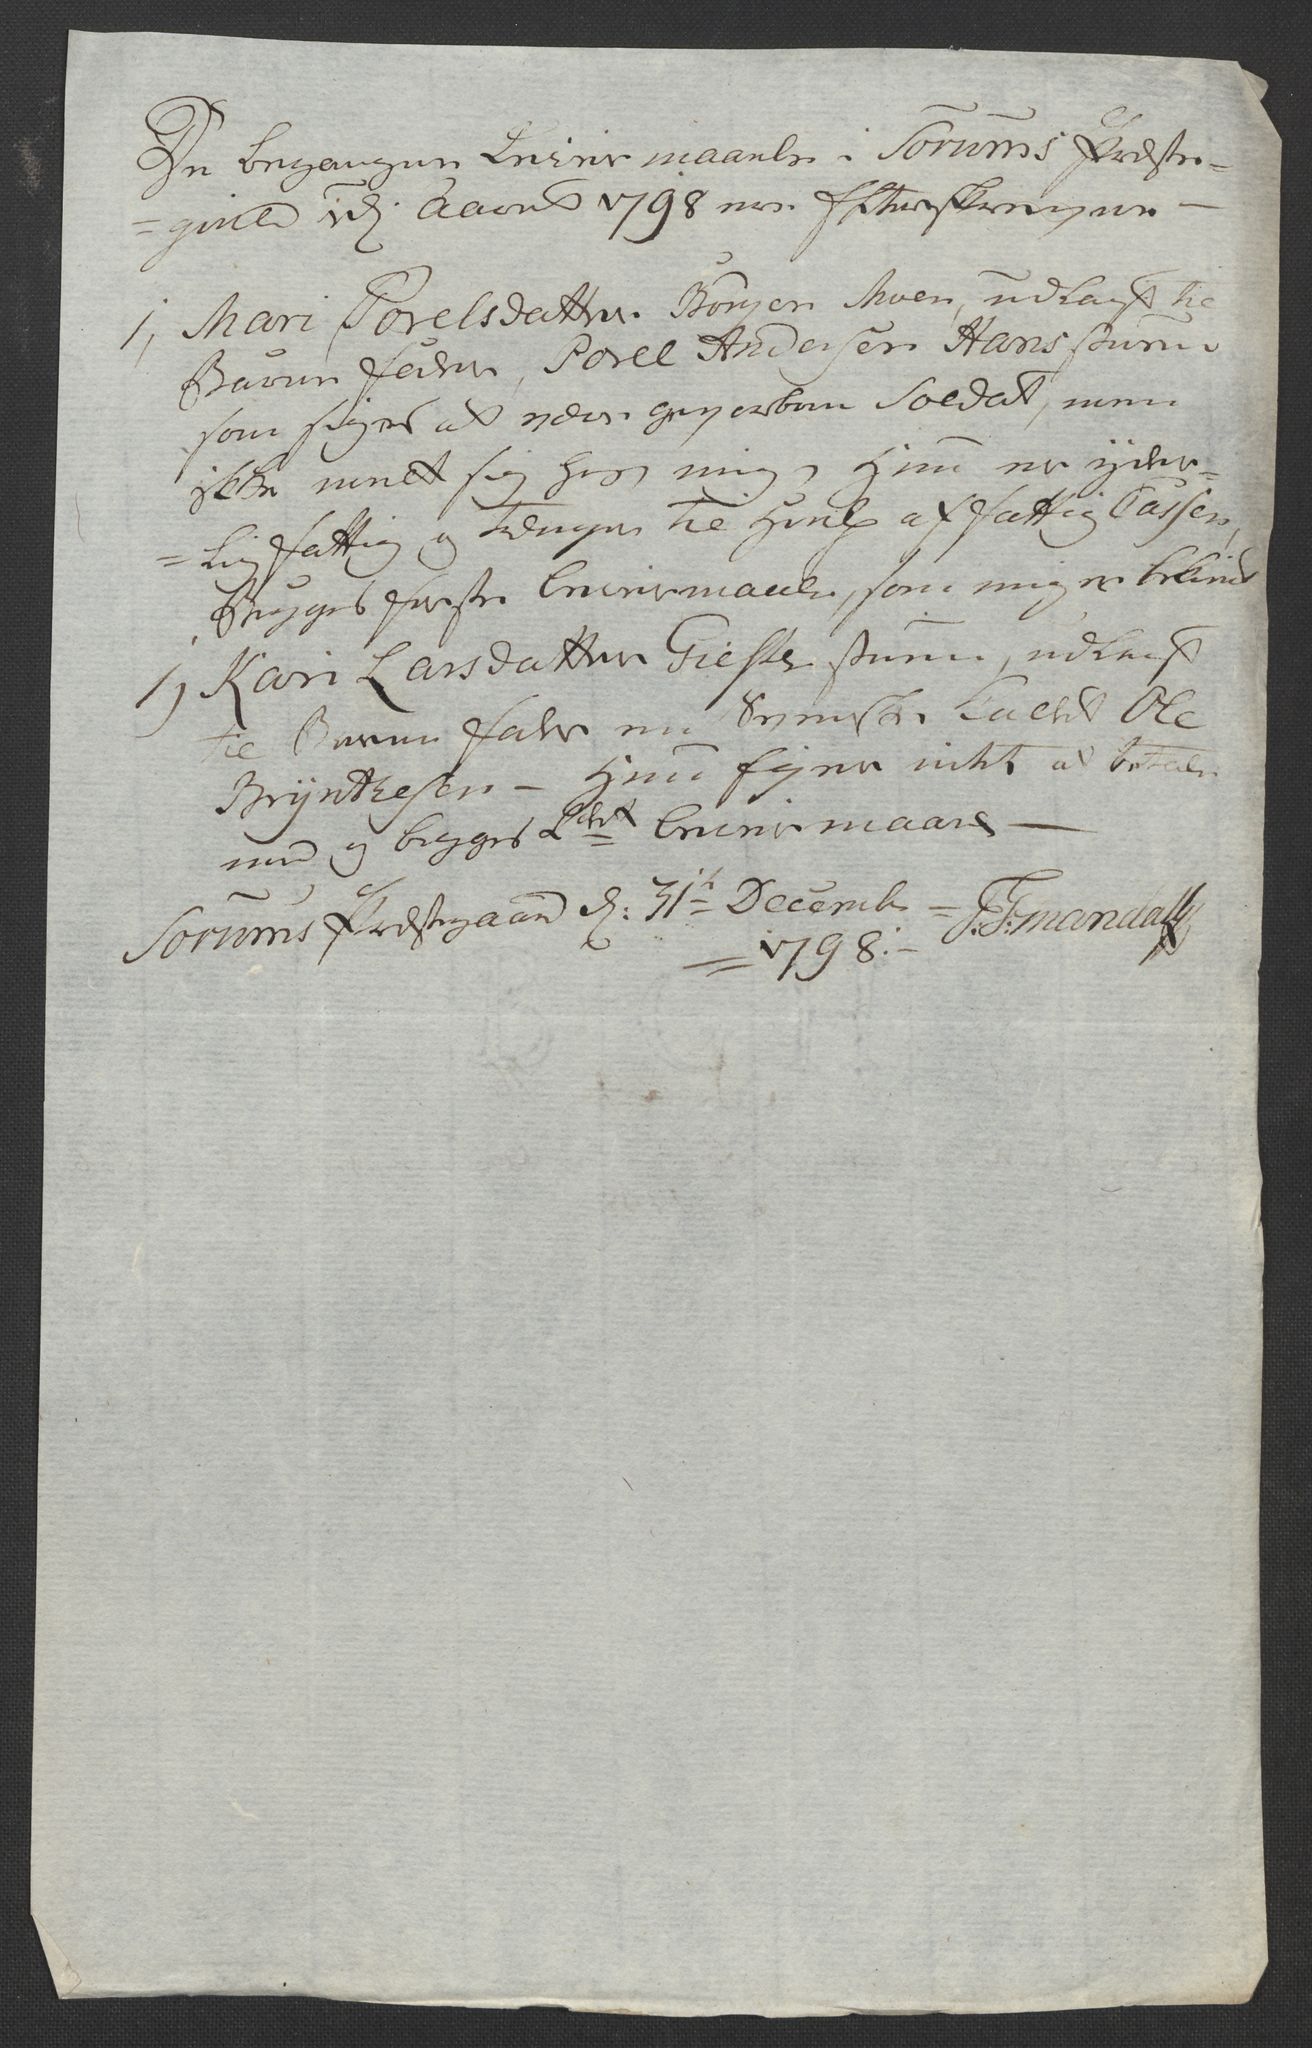 De begangne Leiermaale i Sørums Præste-
=gield i Aaret 1798 ere Efterskrevene —
1, Mari Povelsdatter Børger Moen, udlagt til
Barne fader, Povel Andersen Hans
som siges at være gevorben Soldat, men
ikke meldt sig hos mig, Hun er yder-
=lig fattig og trænger til Hielp af Fattig Cassen,
Begges første Leiermaal, som mig er bekiendt
1) Kari Larsdatter udlagt
til Barne fader en Svensk Ole
Bryntesen — Hun eyer intet at betale
med og begges 2det Leiermaal —
Sørums Præstegaard d: 31te Decembr = J: F: mandall
= 1798 :-